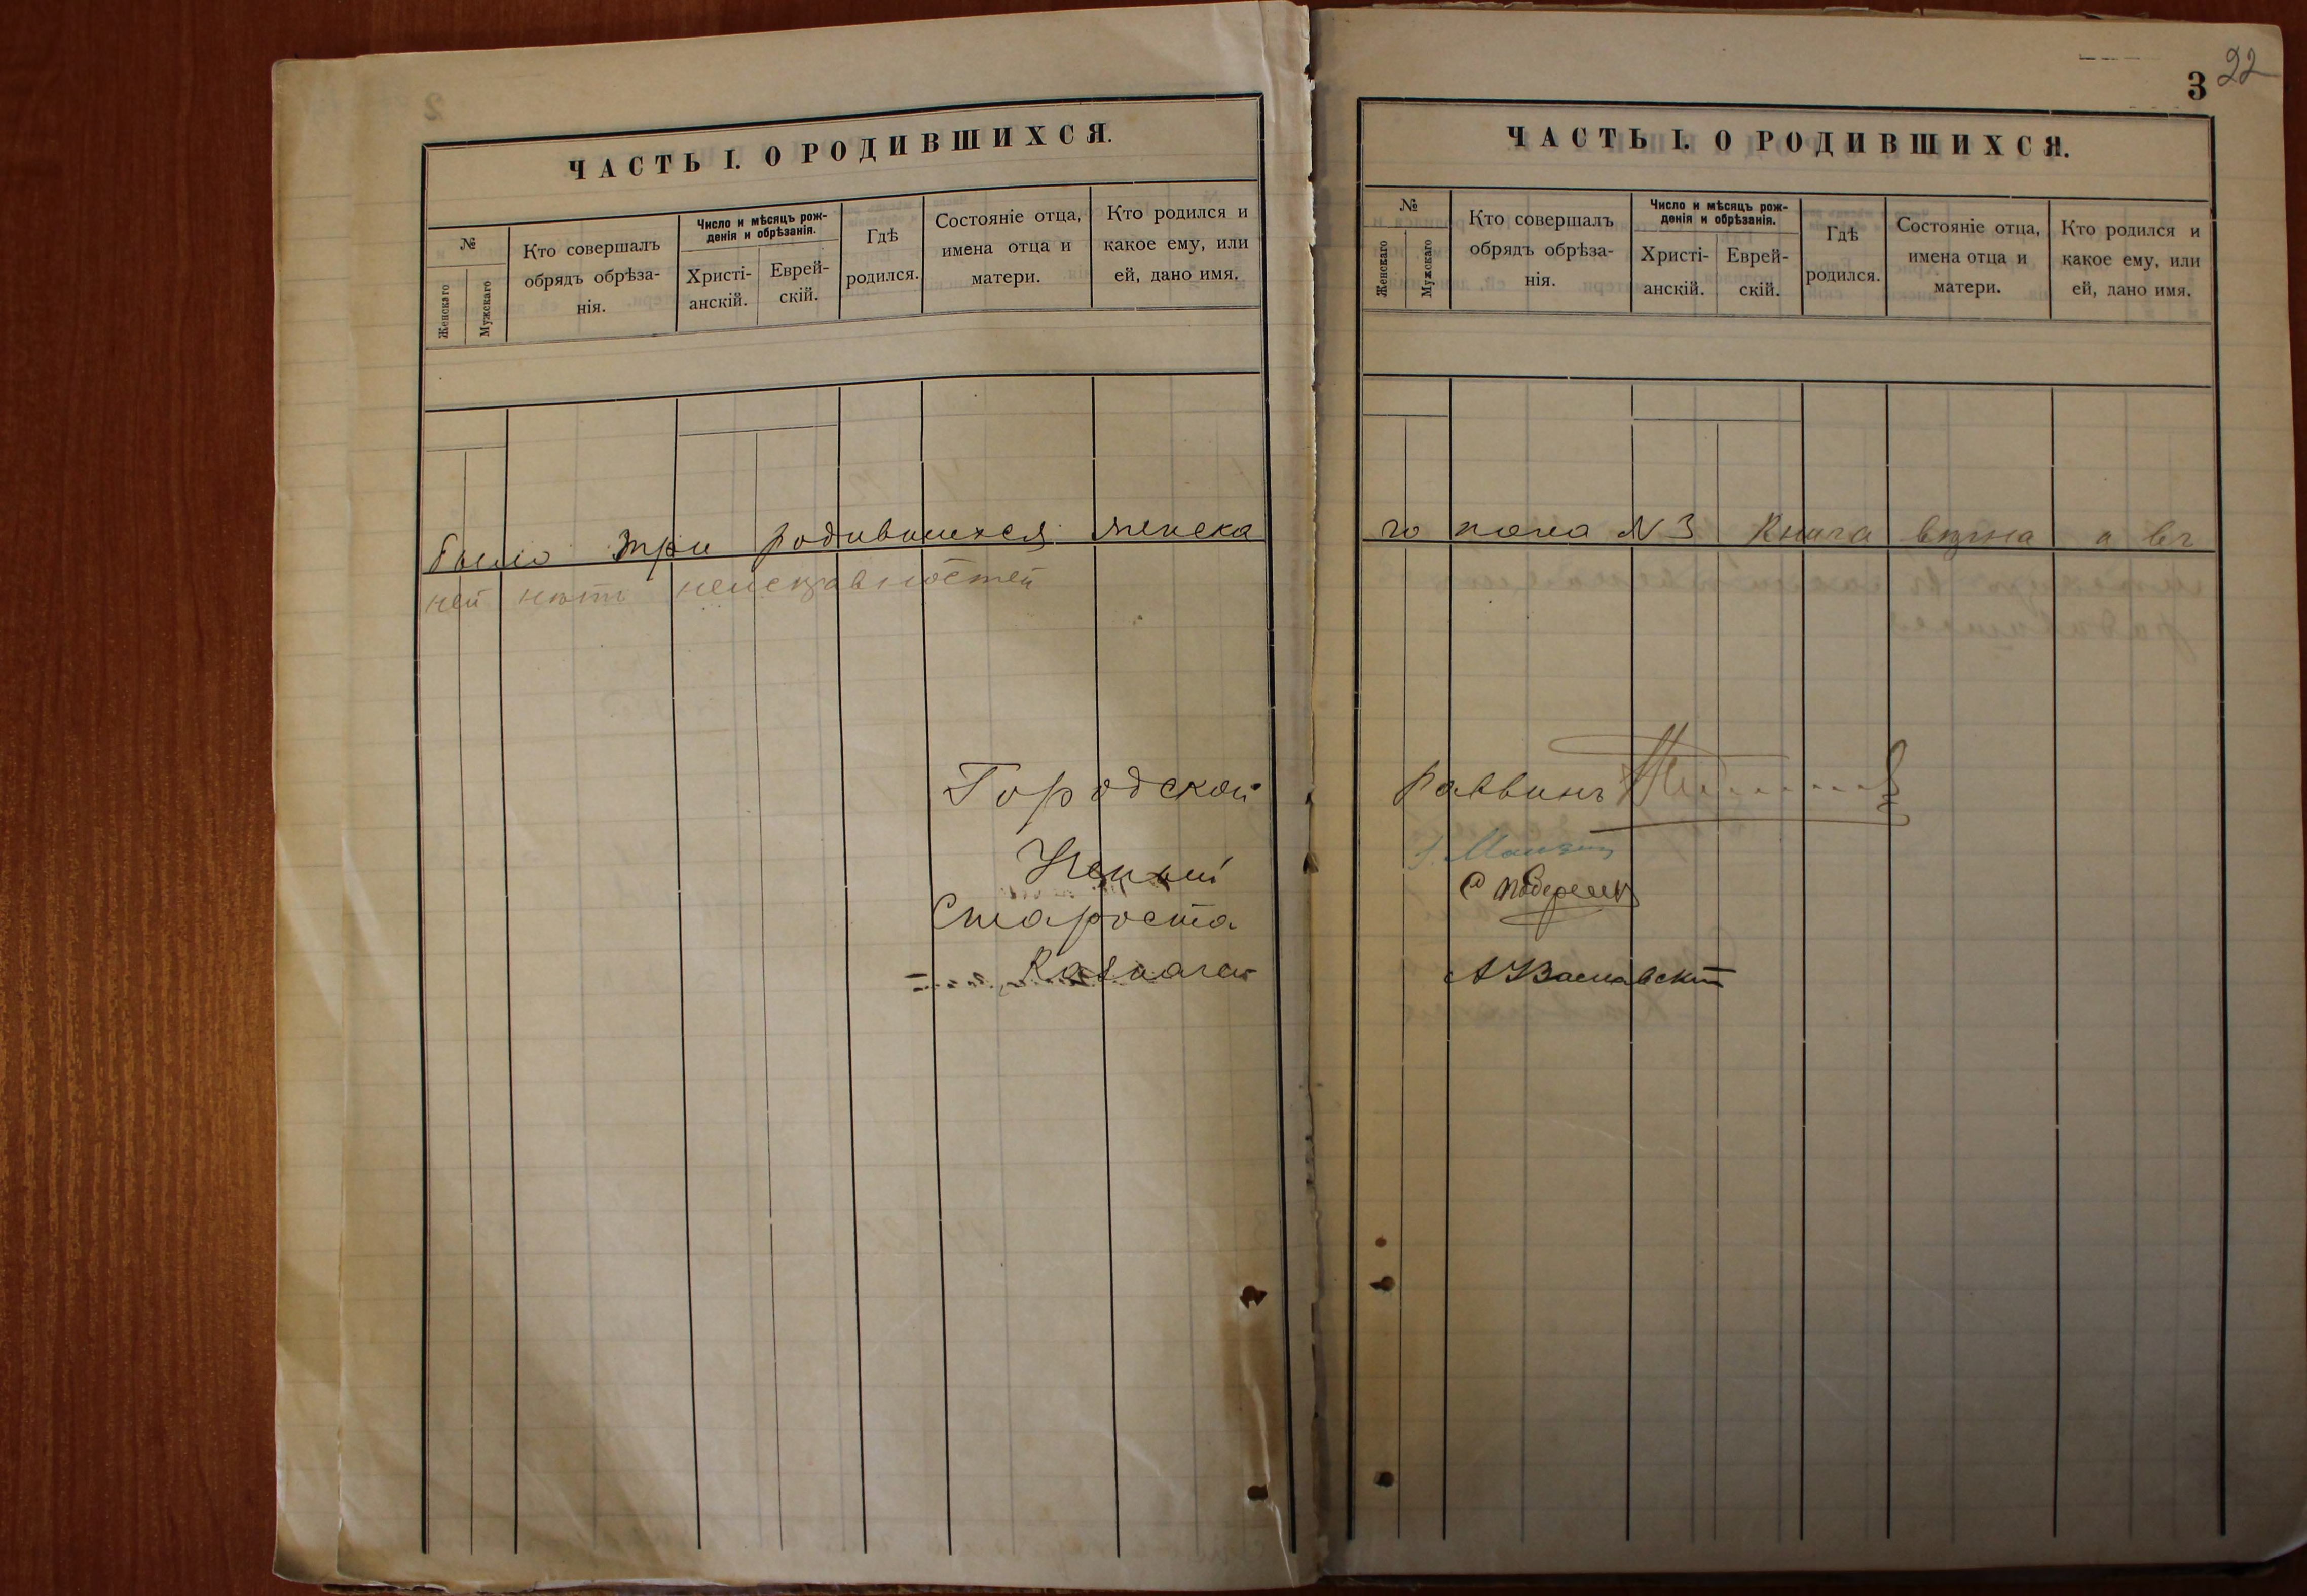 ЧАСТЬ I. О РОДИВШИХСЯ.
№
Женскаго
Мужскаго
Кто совершалъ
обрядъ обрѣза-
нія.
Число и мѣсяцъ рож-
денія и обрѣзанія.
Христі-
анскій.
Еврей-
скій.
Гдѣ
родился.
Состояніе отца,
имена отца и
матери.
Кто родился и
какое ему, или
ей, дано имя.
было три родившихся женска
ней нѣтъ неисправностей
Городской
Ученый
Староста
Казначей
3
22
ЧАСТЬ I. О РОДИВШИХСЯ.
№
Женскаго
Мужскаго
Кто совершалъ
обрядъ обрѣза-
нія.
Число и мѣсяцъ рож-
денія и обрѣзанія.
Христі-
анскій.
Еврей-
скій.
Гдѣ
родился.
Состояніе отца,
имена отца и
матери.
Кто родился и
какое ему, или
ей, дано имя.
го пола N 3 Книга вѣрна а въ
раввинъ